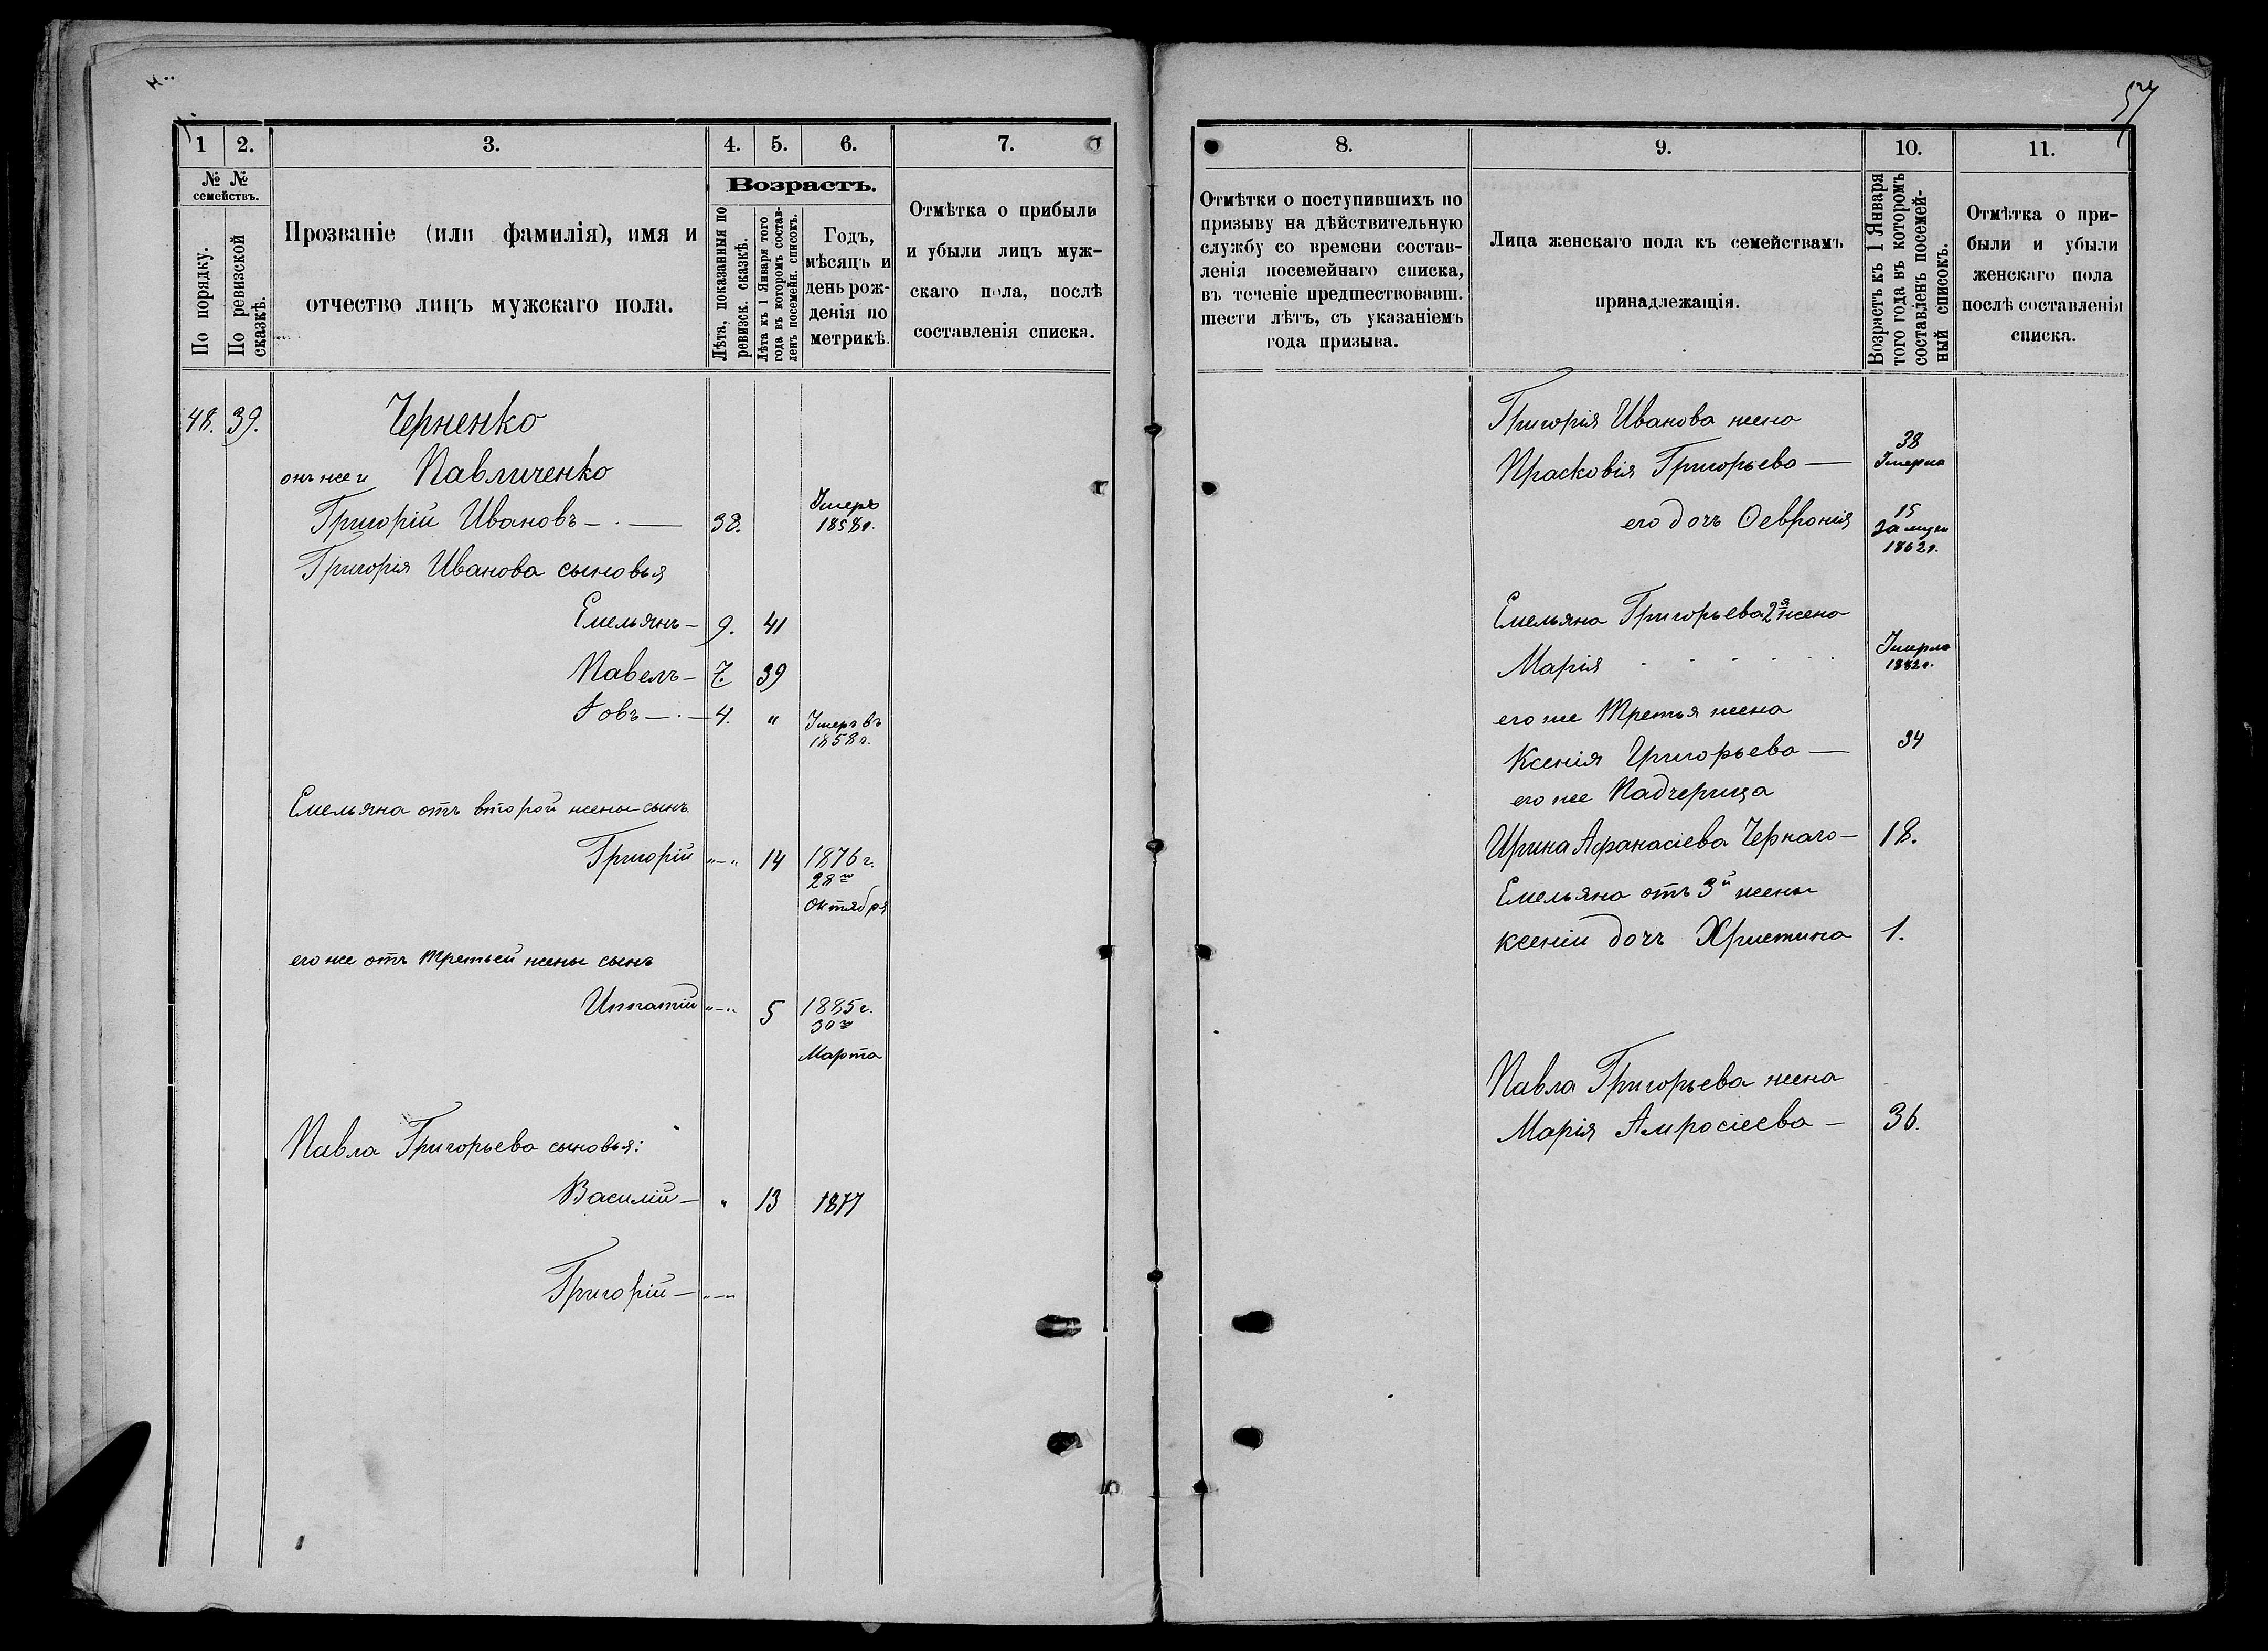 57
1
2.
3.
4.
5.
6.
7.
№ №
семействъ.
По порядку.
По ревизской
сказкѣ.
Прозваніе (или фамилія), имя и
отчество лицъ мужскаго пола.
Возрастъ.
Лѣта, показанныя по
ревизск. сказкѣ.
Лѣта къ 1 Января того
года въ которомъ состав-
ленъ посемейн. списокъ.
Годъ,
мѣсяцъ и
день рож-
денія по
метрикѣ.
Отмѣтка о прибыли
и убыли лицъ муж-
скаго пола, послѣ
составленія списка.
48. 39. Черненко
онъ же и Павличенко
Григорій Ивановъ — 38. Умеръ
1858г.
Григорія Иванова сыновья
Емельянъ — 9. 41
Павелъ — 7. 39
Іовъ — 4. " Умеръ въ
1858г.
Емельяна отъ второй жены сынъ
Григорій "—" 14 1876 г.
28го
Октября
его же отъ третьей жены сынъ
Ипатій "—" 5 1885 г.
30го
Марта
Павла Григорьева сыновья:
Василій — " 13 1877
Григорій — "—"
8.
9.
10.
11.
Отмѣтки о поступившихъ по
призыву на дѣйствительную
службу со времени состав-
ленія посемейнаго списка,
въ теченіе предшествовавш.
шести лѣтъ, съ указаніемъ
года призыва.
Лица женскаго пола къ семействамъ
принадлежащія.
Возрастъ къ 1 Января
того года въ которомъ
составленъ посемей-
ный списокъ.
Отмѣтка о при-
были и убыли
женскаго пола
послѣ составленія
списка.
Григорія Иванова жена
Прасковія Григорьева — 38
Умерла
его дочь Февронія 15
Замужъ
1862г.
Емельяна Григорьева 2я жена
Марія . . . . . Умерла
1882г.
его же третья жена
Ксенія Григорьева — 34
его же Падчерица
Ирина Афанасіева Чернаго — 18.
Емельяна отъ 3й жены
Ксеніи дочь Христина 1.
Павла Григорьева жена
Марія Амросіева — 36.